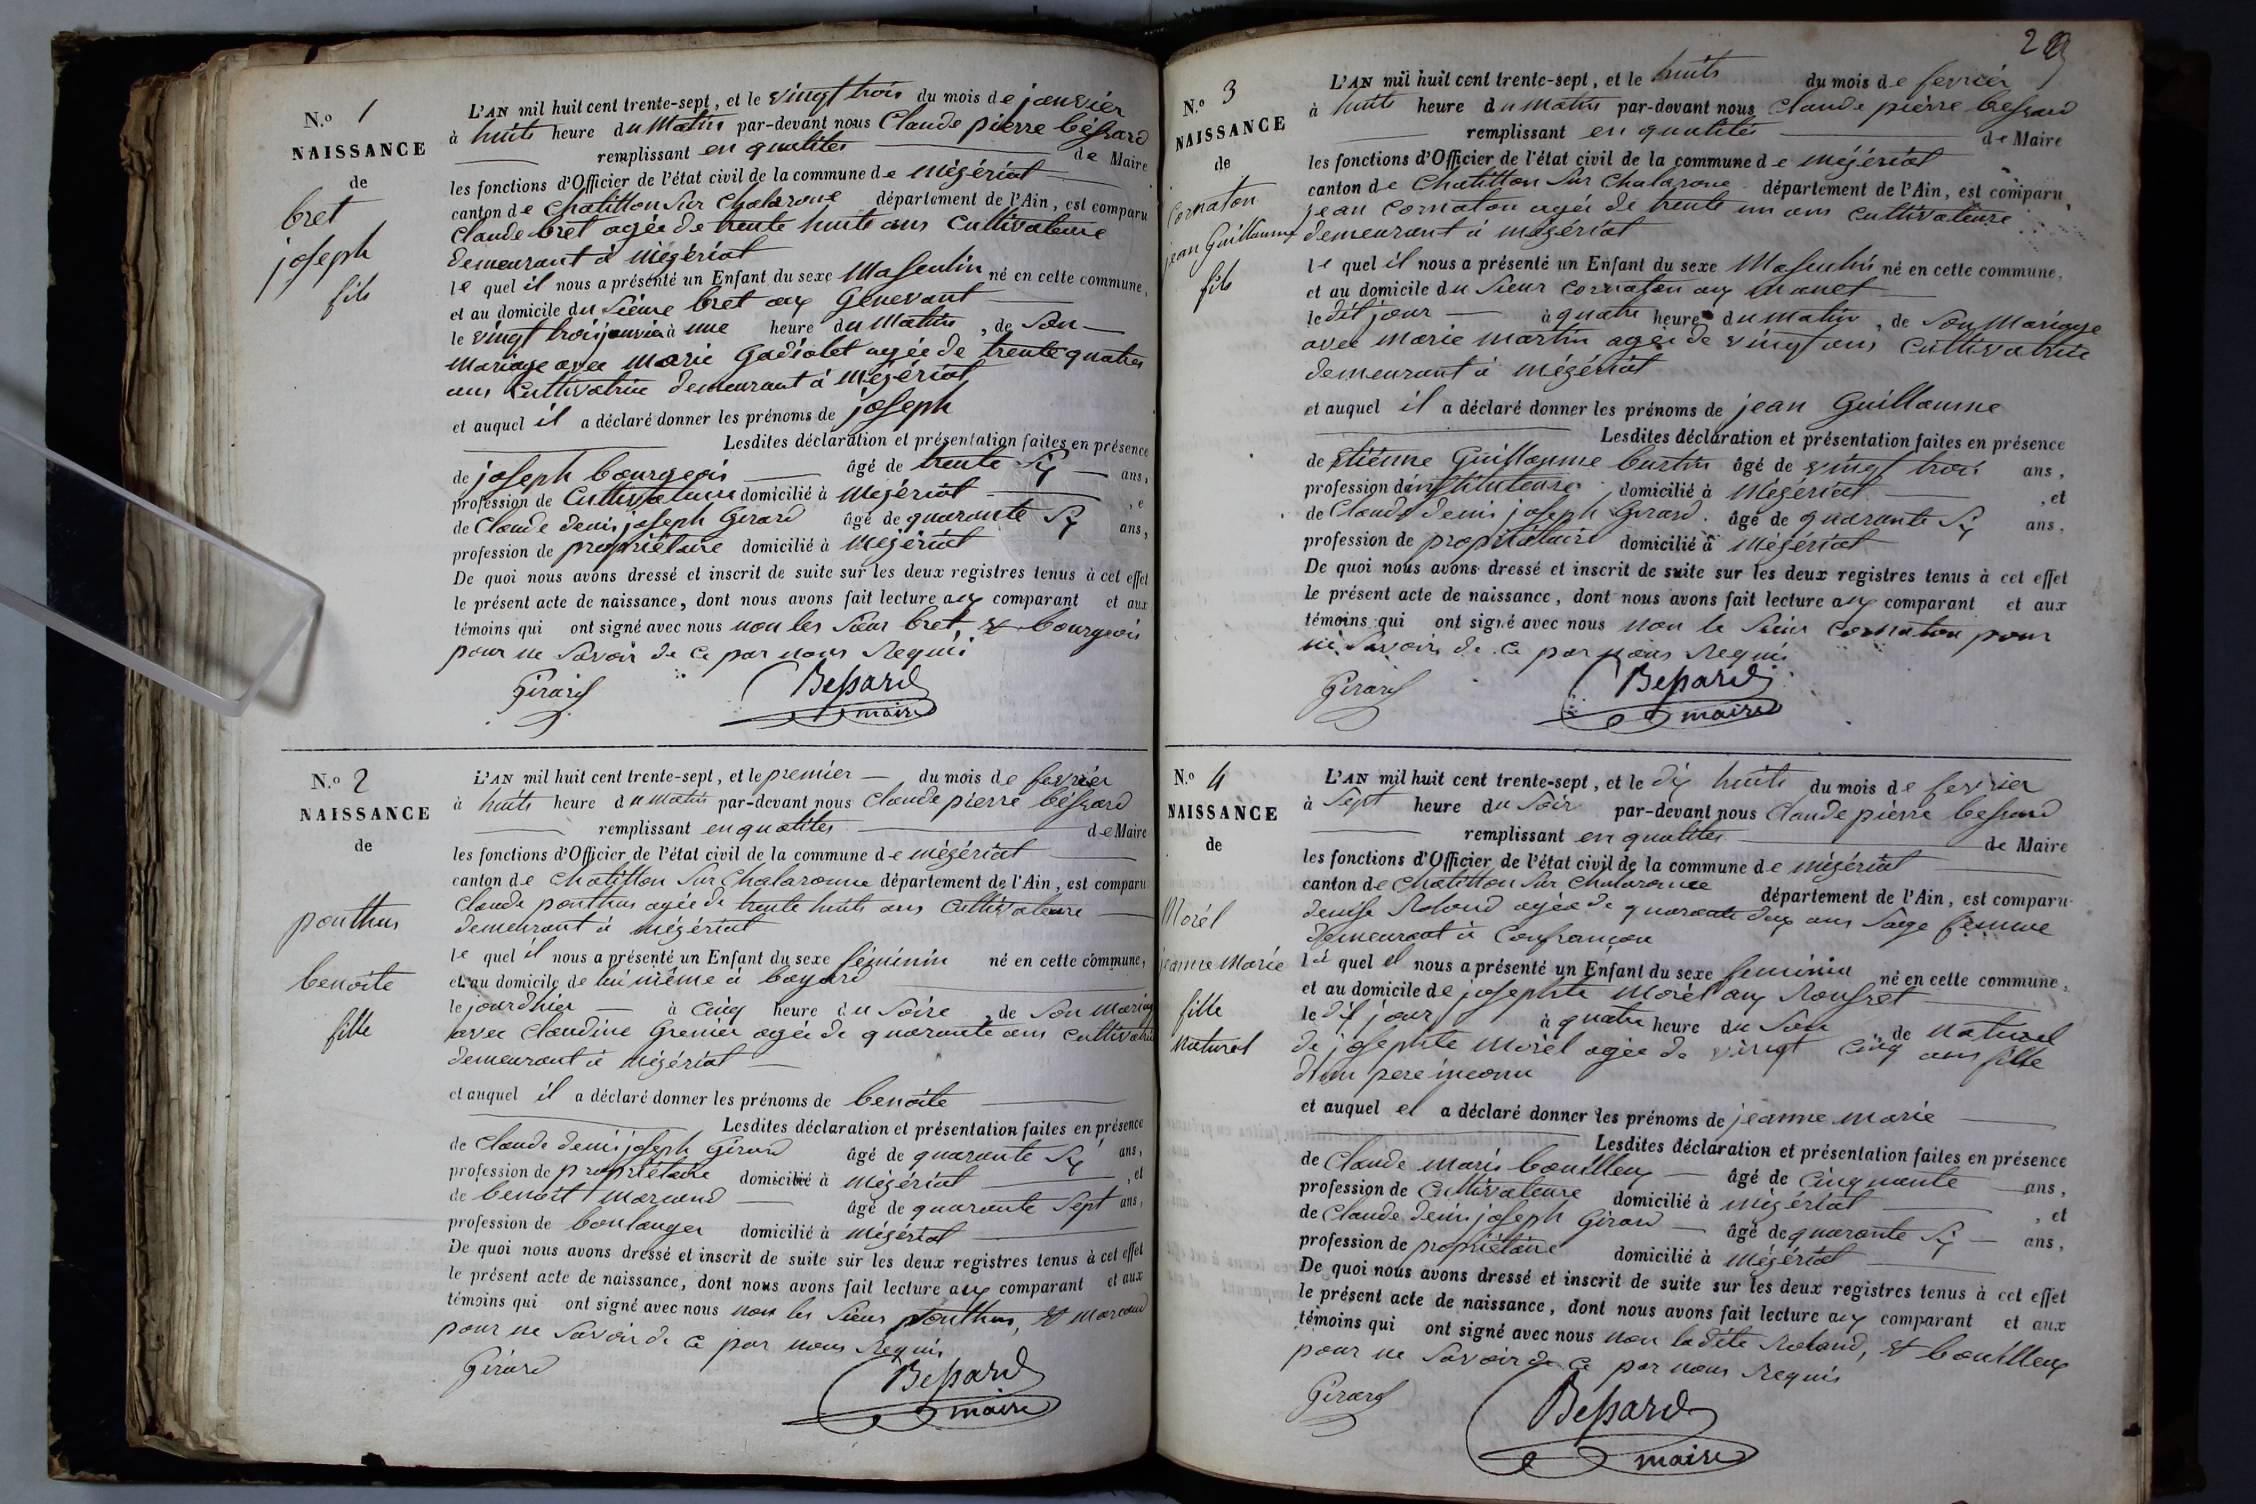 N.º 1
NAISSANCE
de
bret
joseph
fils
L'AN mil huit cent trente-sept, et le vingt trois du mois de janvier
à huits heure du Matin par-devant nous Claude pierre béssard
remplissant en qualités de Maire
les fonctions d'Officier de l'état civil de la commune de mégériat
canton de Chatillon Sur Chalarone département de l'Ain, est comparu
Claude bret agée de trente huits ans Cultivateure
demeurant à mégériat
le quel il nous a présenté un Enfant du sexe Masculin né en cette commune,
et au domicile du Sieure bret aux Genevant
le vingt trois janvier à une heure du Matin, de Son
Mariage avec Marie Gadiolet agée de trente quatres
ans Cultivatrice demeurant à Mégériat
et auquel il a déclaré donner les prénoms de joseph
Lesdites déclaration et présentation faites en présence
de joseph bourgeois âgé de trente Six ans,
profession de Cultivateure domicilié à Mégériat, e
de Claude denis joseph Girard âgé de quarante Six ans,
profession de propriétaire domicilié à Mégériat
De quoi nous avons dressé et inscrit de suite sur les deux registres tenus à cet effet
le présent acte de naissance, dont nous avons fait lecture aux comparant et aux
témoins qui ont signé avec nous non les Sieur bret, & bourgeois
pour ne Savoir de Ce par nous Requis
Girard Bessard
maire
N.º 2
NAISSANCE
de
ponthus
benoite
fille
L'AN mil huit cent trente-sept, et le premier du mois de fevrier
à huits heure du matin par-devant nous Claude pierre béssard
remplissant en qualités de Maire
les fonctions d'Officier de l'état civil de la commune de mégériat
canton de Chatillon Sur Chalaronne département de l'Ain, est comparu
Claude ponthus agée de trente huits ans Cultivateure
demeurant à mégériat
le quel il nous a présenté un Enfant du sexe feminin né en cette commune,
et au domicile de lui même à bayard
le jourdhier à Cinq heure du Soire, de Son Mariag
avec Claudine Grenier agée de quarante ans Cultivatri
demeurant à Mégériat
et auquel il a déclaré donner les prénoms de benoite
Lesdites déclaration et présentation faites en présence
de Claude denis joseph Girard âgé de quarante Six ans,
profession de propriétaire domicilié à mégériat, et
de benoit Marcand âgé de quarante Sept ans,
profession de boulanger domicilié à mégériat
De quoi nous avons dressé et inscrit de suite sur les deux registres tenus à cet effet
le présent acte de naissance, dont nous avons fait lecture aux comparant et aux
témoins qui ont signé avec nous non les Sieur ponthus, & Marcand
pour ne Savoir de Ce par nous Requis
Girard Bessard
maire
N.º 3
NAISSANCE
de
Cornaton
jean Guillaume
fils
L'AN mil huit cent trente-sept, et le huits du mois de fevrier
à huits heure du Matin par-devant nous Claude pierre bessard
remplissant en qualités de Maire
les fonctions d'Officier de l'état civil de la commune de mégériat
canton de Chatillon Sur Chalarone département de l'Ain, est comparu,
jean Cornaton agée de trente un ans Cultivateure
demeurant à mégériat
le quel il nous a présenté un Enfant du sexe Masculin né en cette commune,
et au domicile du Sieur Cornaton aux
le dit jour à quatre heure du Matin, de Son Mariage
avec Marie Martin agée de vingt ans Cultivatrice
demeurant à mégériat
et auquel il a déclaré donner les prénoms de jean Guillaume
Lesdites déclaration et présentation faites en présence
de Etiénne Guillaume âgé de vingt trois ans,
profession d'instituteure domicilié à Mégériat, et
de Claude denis joseph Girard. âgé de quarante Six ans,
profession de propriétaire domicilié à mégériat
De quoi nous avons dressé et inscrit de suite sur les deux registres tenus à cet effet
le présent acte de naissance, dont nous avons fait lecture aux comparant et aux
témoins qui ont signé avec nous non le Sieur Cornaton pour
ne Savoir de Ce par nous Requis
Girard Bessard
maire
N.º 4
NAISSANCE
de
Morél
jeanne Marie
fille
naturel
L'AN mil huit cent trente-sept, et le dix huits du mois de fevrier
à Sept heure du Soir par-devant nous Claude pierre bessard
remplissant en qualités de Maire
les fonctions d'Officier de l'état civil de la commune de mégériat
canton de Chatillon Sur Chalaronne département de l'Ain, est comparu
denise Roland agée de quarante deux ans Sage femme
demeurant à Confrançon
la quel el nous a présenté un Enfant du sexe feminin né en cette commune,
et au domicile de josephte Morél aux
le dit jour à quatre heure du Soir, de naturel
de josephte Morél agée de vingt Cinq ans fille
d'un pere inconu
et auquel el a déclaré donner les prénoms de jeanne marie
Lesdites déclaration et présentation faites en présence
de Claude Marie bouilloux âgé de Cinquante ans,
profession de Cultivateure domicilié à mégériat, et
de Claude denis joseph Girard âgé de quarante Six ans,
profession de propriétaire domicilié à mégériat
De quoi nous avons dressé et inscrit de suite sur les deux registres tenus à cet effet
le présent acte de naissance, dont nous avons fait lecture aux comparant et aux
témoins qui ont signé avec nous non ladite Roland, & bouilloux
pour ne Savoir de Ce par nous Requis
Girard Bessard
maire